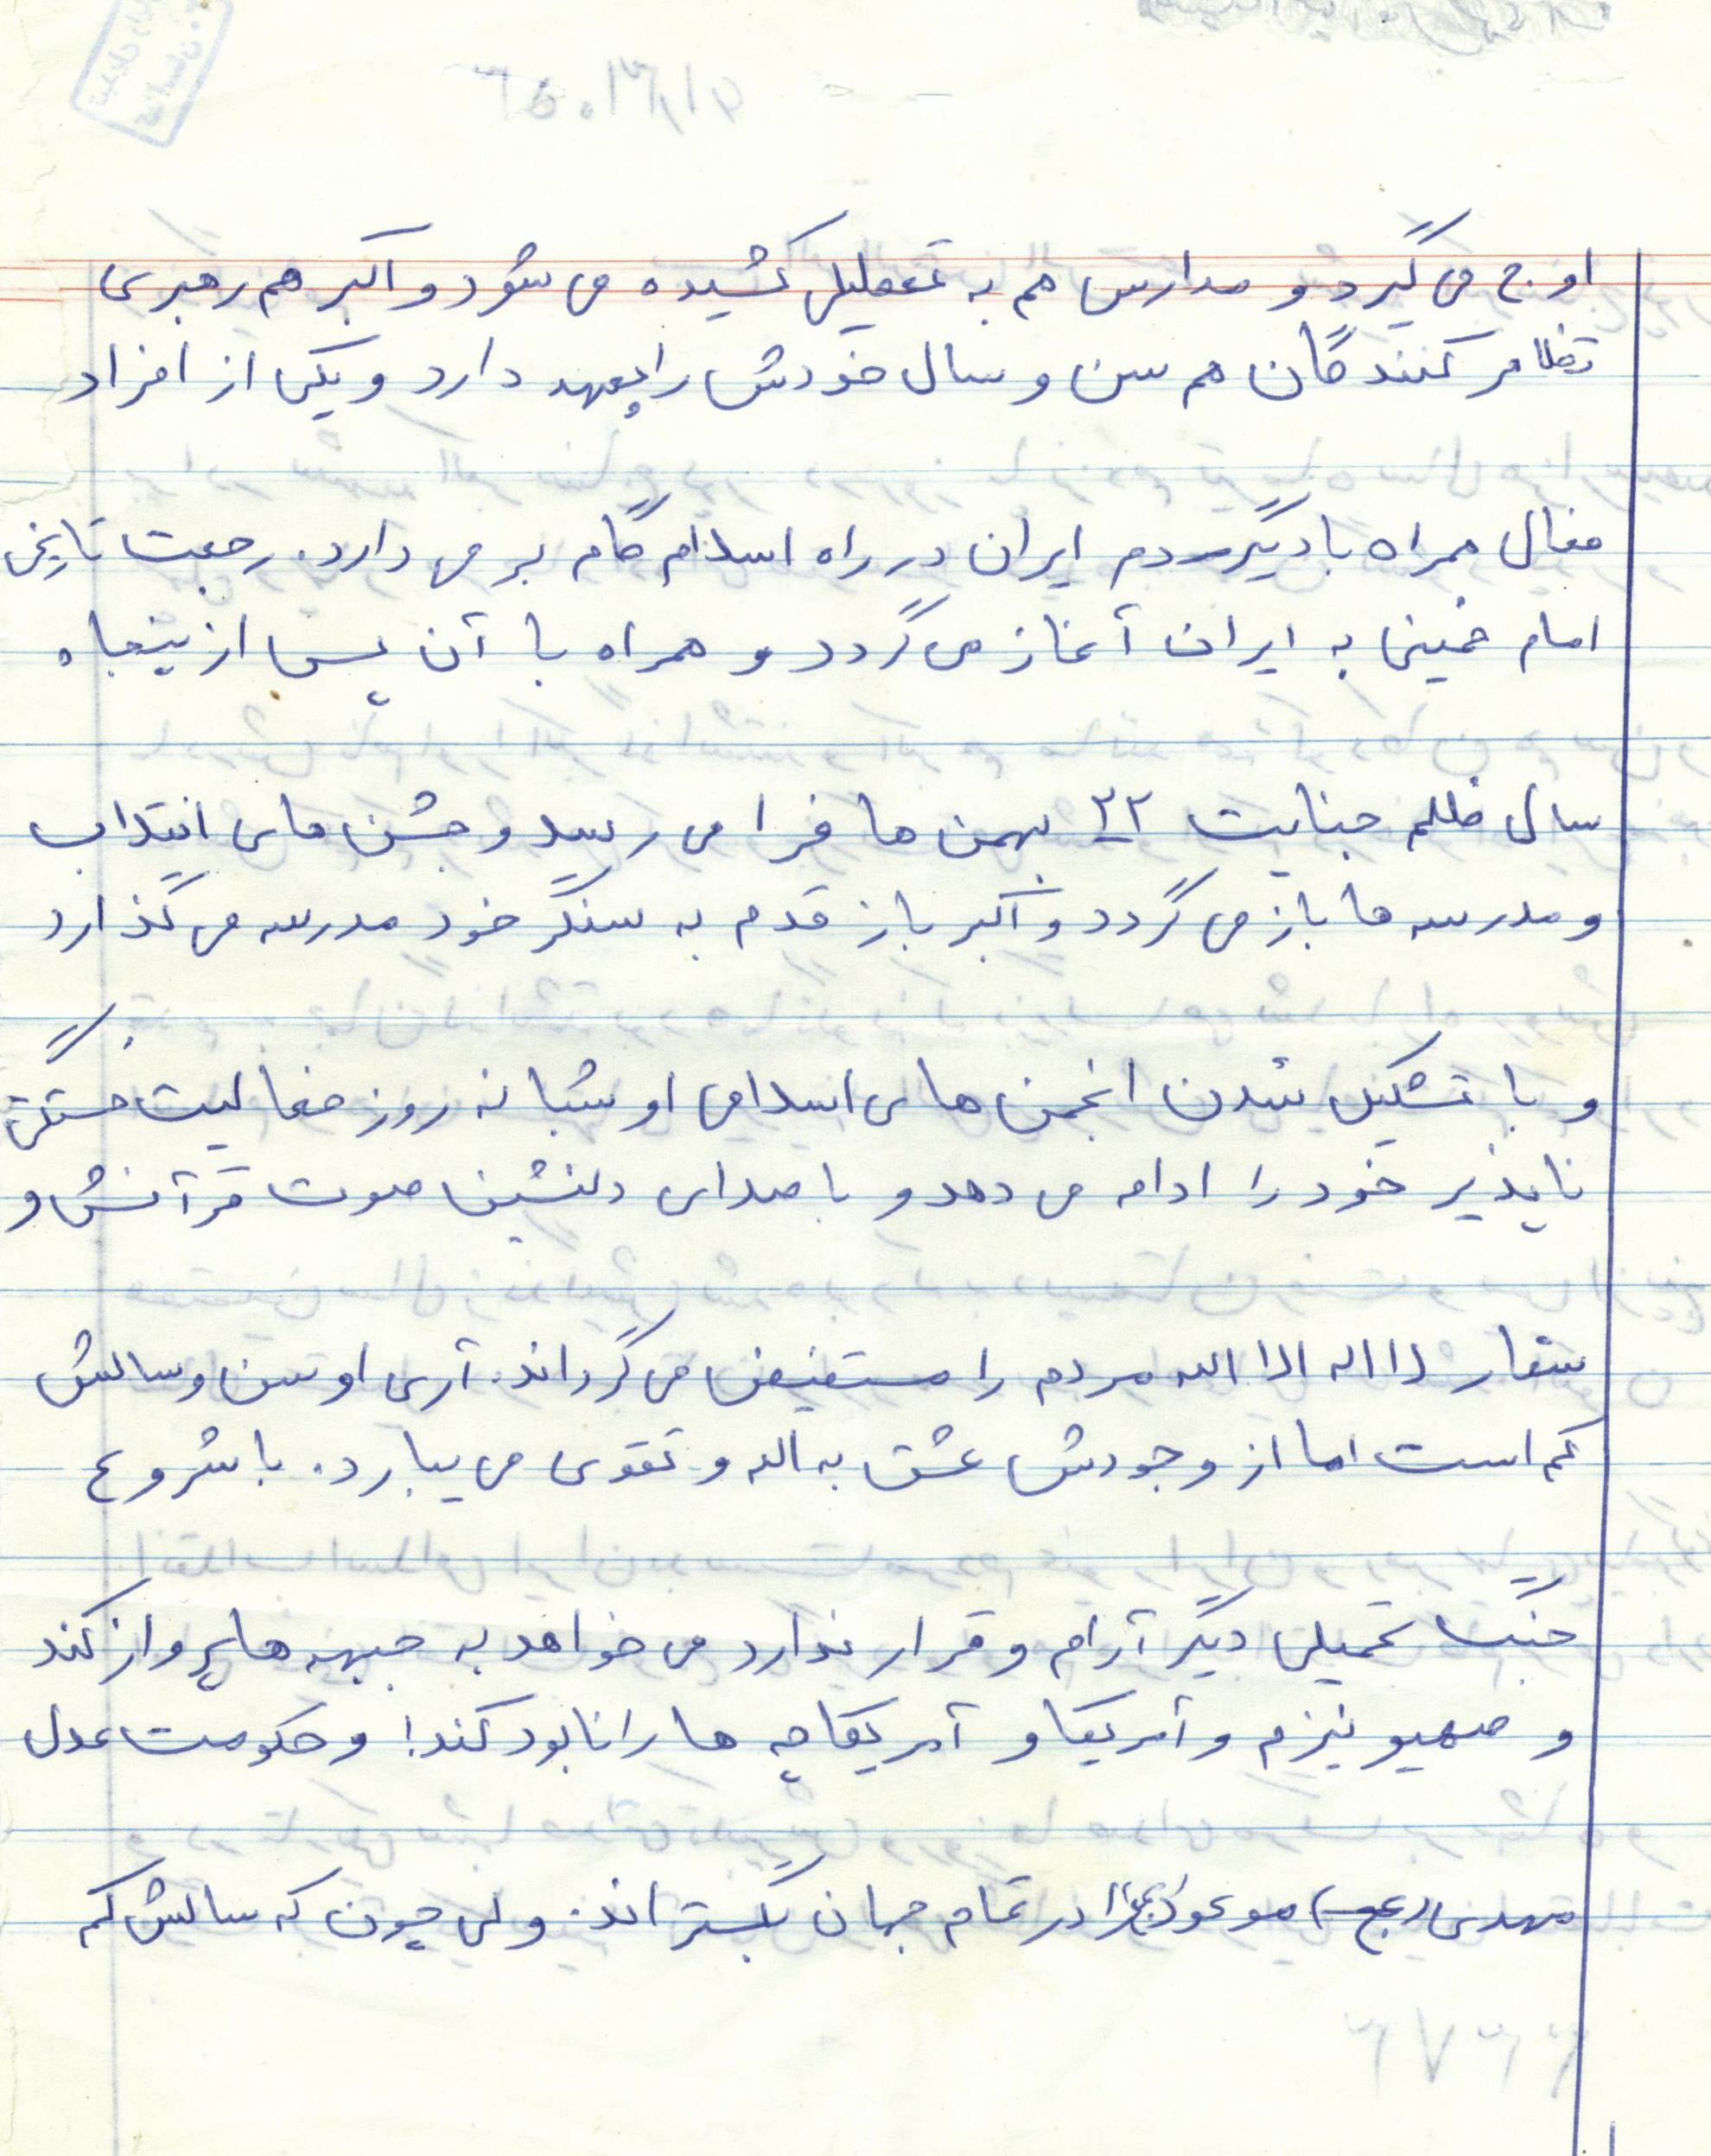 اوج می گیرد و مدارس هم به تعطیلی کشیده می شود و اکبر هم رهبری
تظاهر کنندگان هم سن و سال خودش را بعهد دارد و یکی از افراد
فعال همراه با دیگر مردم ایران در راه اسلام گام بر می دارد. رجعت تاریخی
امام خمینی به ایران آغاز می گردد و همراه با آن پس از پنجاه
سال ظلم جنایت ۲۲ بهمن ها فرا می رسید و جشن های انقلاب
و مدرسه ها باز می گردد و اکبر باز قدم به سنگر خود مدرسه می گذارد
و با تشکیل شدن انجمن های اسلامی او شبانه روز فعالیت خستگی
ناپذیر خود را ادامه می دهد و با صدای دلنشین صوت قرآنش و
شعار لا اله الا الله مردم را مستفیض می گرداند. آری او سن و سالش
کم است اما از وجودش عشق به الله و تقوی می ببارد. با شروع
جنگ تحمیلی دیگر آرام و قرار ندارد می خواهد به جبهه ها پرواز کند
و صهیونیزم و آمریکا و آمریکاچه ها را نابود کند! و حکومت عدل
مهدی (عج) موعود (عج) را در تمام جهان بگستراند. ولی چون که سالش کم